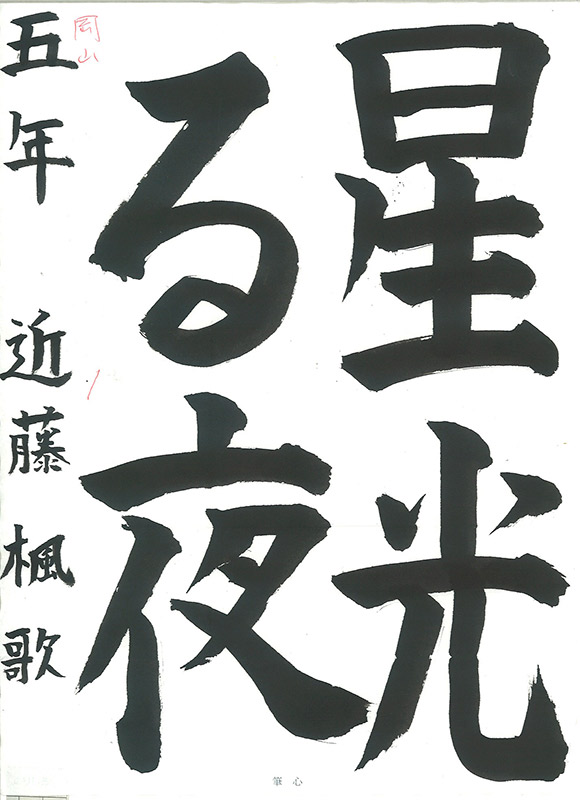 星光
る夜
五年 近藤楓歌
岡山
筆心